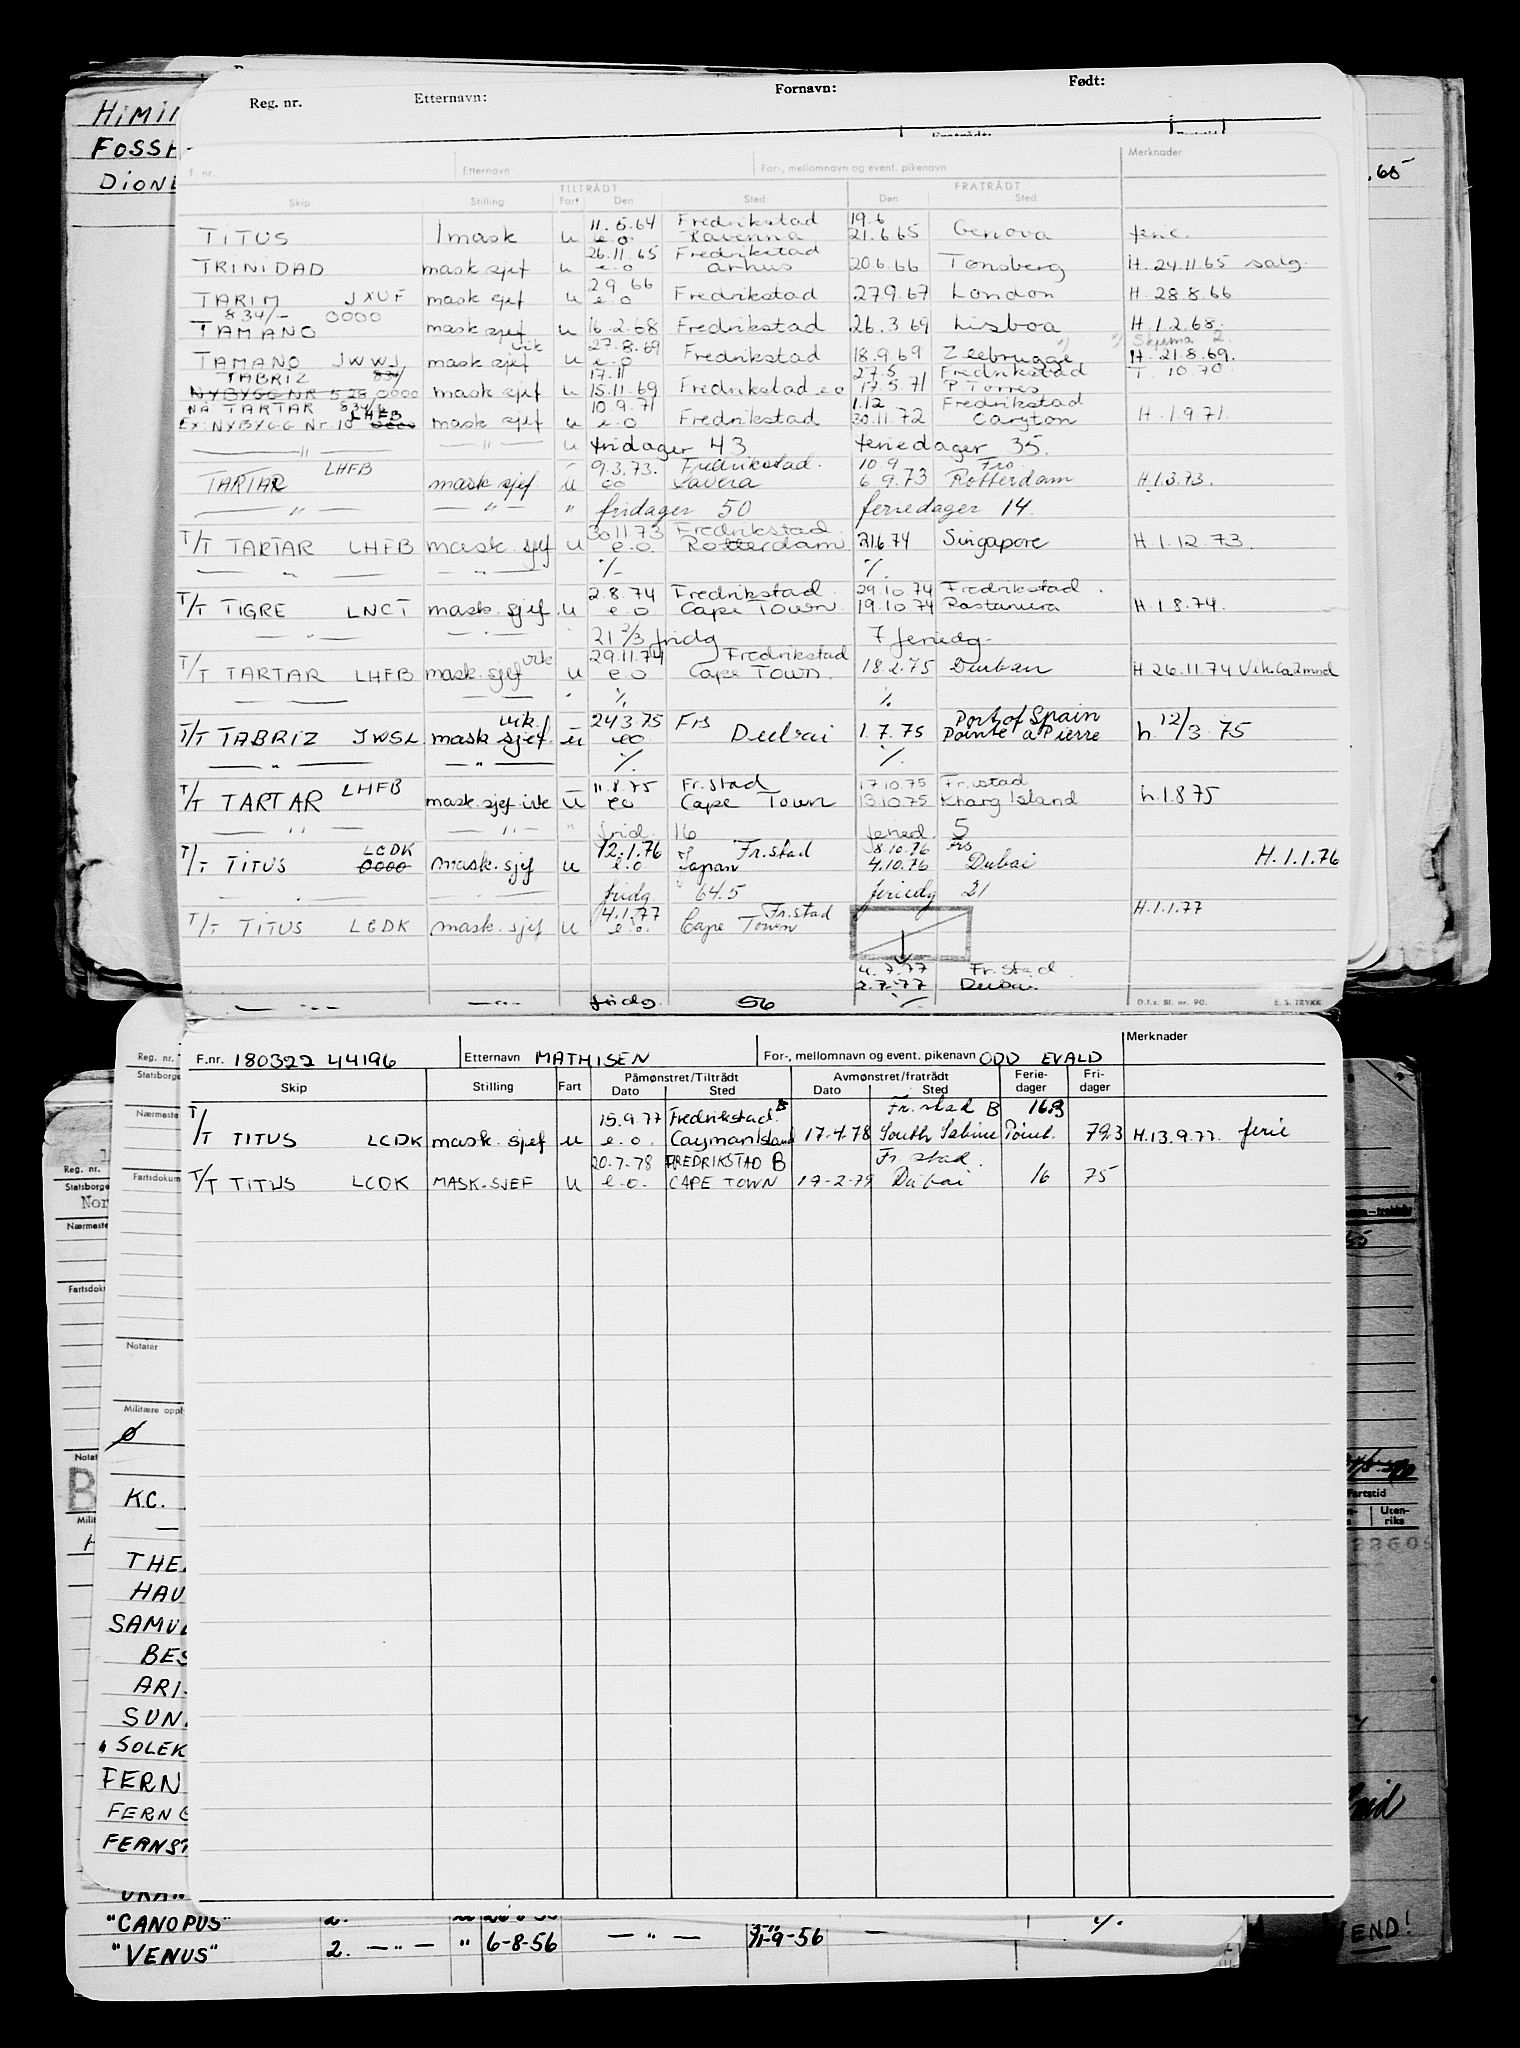 Reg. nr. Etternavn: Fornavn: Født:
HIMIN
FOSSH
DIONE
.65
F. nr. Etternavn For-, mellomnavn og event. pikenavn Merknader
TILTRÅDT FRATRÅDT
Skip Stilling Fart Den Sted Den Sted
11.5.64 Fredrikstad 19.6
TITUS 1 mask u e.o. Ravenna 21.6.65 Genova ferie.
26.11.65 Fredrikstad
TRINIDAD mask sjef u e.o århus 20.6.66 Tønsberg H. 24.11.65 salg.
2.9.66
TARIM JXUF mask sjef u e.o Fredrikstad 27.9.67 London H. 28.8.66
834/- 0000
TAMANO mask sjef u 16.2.68 Fredrikstad 26.3 69 Lisboa H. 1.2.68.
vik 27.8.69 x) x) Skjema 2.
TAMANO JWWJ mask sjef u e.o Fredrikstad 18.9.69 Zeebrugge H. 21.8.69.
TABRIZ 834/ 17.11 27.5 Fredrikstad T. 10.70
NYBYGG NR 528 0000 mask sjef u 15.11.69 Fredrikstad e.o 17.5.71 P. Torres
NÅ TARTAR 834/- LHFB 10.9.71 1.12 Fredrikstad
EX. NYBYGG Nr. 10 0000 mask sjef u e.o Fredrikstad 30.11.72 Caryton H. 1.9.71.
— " — — " — u fridager 43 feriedager 35.
LHFB 9.3.73. Fredrikstad. 10.9 Fro.
TARTAR mask sjef. u eo Lavera 6.9.73 Rotterdam H.1.3.73.
— " — — " — " fridager 50 feriedager 14.
30.11.73 Fredrikstad.
T/T TARTAR LHFB mask. sjef u e.o. Rotterdam 21.6.74 Singapore H. 1.12.73.
— " — — " — ./. ./.
2.8.74 Fredrikstad. 29.10.74 Fredrikstad.
T/T TIGRE LNCT mask. sjef. u e.o Cape Town. 19.10.74 Rastanura H. 1.8.74.
— " — — " — 21 2/3 fridg 7 feriedg-
vik 29.11.74 Fredrikstad
T/T TARTAR LHFB mask. sjef u e.o Cape Town. 18.2.75 Durban H. 26.11.74 Vik. ca 2 mnd
— " — — " — ./. ./.
vik. 24.3.75 Frs Port of Spain
T/T TABRIZ JWSL mask sjef. u eo Dubai 1.7.75 Pointe a Pierre h. 12/3.75
— " — — " — ./. ./.
LHFB 11.8.75 Fr.stad 17.10.75 Fr.stad
T/T TARTAR mask. sjef vik u eo Cape Town 13.10.75 Kharg Island h.1.8.75
— " — — " — " frid. 16 feried. 5
LCDK 12.1.76 Fr.stad 8.10.76 Frs
T/T TITUS 0000 mask. sjef u e.o. Japan 4.10.76 Dubai H. 1.1.76
fridg 64.5 feriedg 21
4.1.77 Fr.stad H.1.1.77
T/T TITUS LCDK mask. sjef u e.o. Cape Town
4.7.77 Fr.stad.
2.7.77 Dubai.
— " — — " — fridg. 56 ./. D.f.s. Sl. nr. 90. E. S. TRYKK
F.nr. 180322 44196 Etternavn MATHISEN For-, mellomnavn og event. pikenavn ODD EVALD Merknader
Skip Stilling Fart Påmønstret/Tiltrådt Avmønstret/fratrådt Ferie-dager Fri-dager
Dato Sted Dato Sted
15.9.77 Fredrikstad B Fr.stad B 16.3
T/T TITUS LCDK mask. sjef u e.o. Cayman Island 17-4-78 South Sabine Point. 79.3 H.13.9.77. ferie
20-7-78 FREDRIKSTAD B Fr. stad.
T/T TITUS LCDK MASK.SJEF u e.o. CAPE TOWN 17-2-79 Dubai 16 75
Reg. nr.
Statsborge
Nærmeste
Fartsdokum
Notater
Militære oppl
Ø
K.C.
THE
HAU
SAMUE
BES
ARI
SUN
SOLEK
FERN
FERN
FERNST
Reg. nr.
Statsborge
Nor
Nærmeste
Fartsdoku
Notat
B
Milit
fartstid
Uten-riks
"CANOPUS" 2. ./.
"VENUS" 2. — " — " 6-8-56 — " — 9-56 —
END!